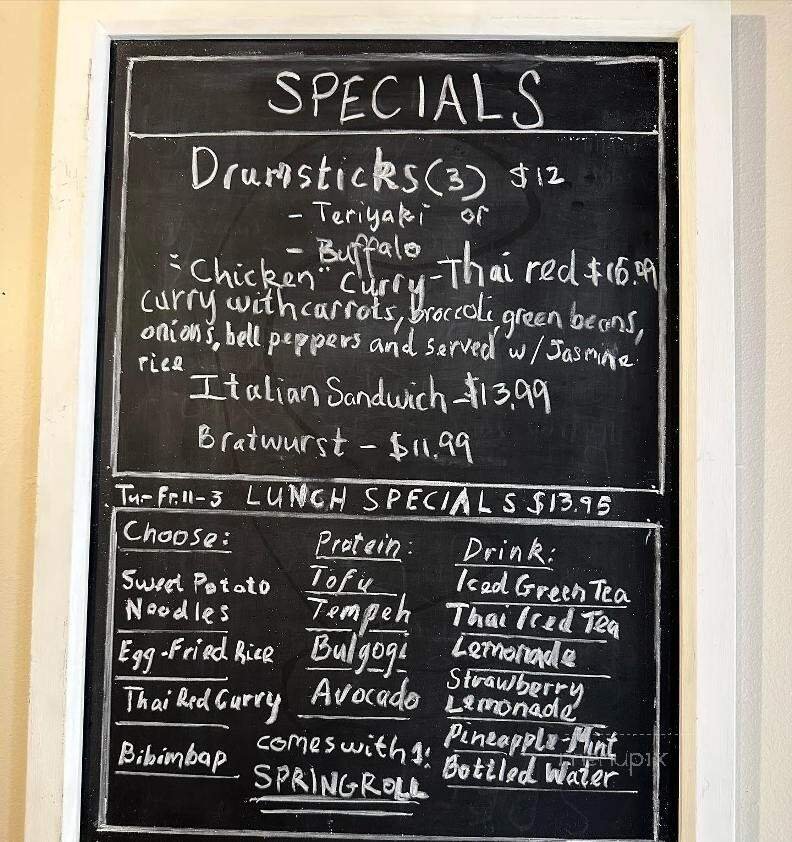 SPECIALS
Drumsticks (3) $12
- Teriyaki or
- Buffalo
- "Chicken" Curry - Thai red $16.99
curry with carrots, broccoli, green beans,
onions, bell peppers and served w/ Jasmine
rice
Italian Sandwich - $13.99
Bratwurst - $11.99
Tu-Fr. 11-3 LUNCH SPECIALS $13.95
Choose:
Sweet Potato
Noodles
Egg-Fried Rice
Thai Red Curry
Bibimbap
Protein:
Tofu
Tempeh
Bulgogi
Avocado
comes with 1:
SPRINGROLL
Drink:
Iced Green Tea
Thai Iced Tea
Lemonade
Strawberry
Lemonade
Pineapple-Mint
Bottled Water
menupix